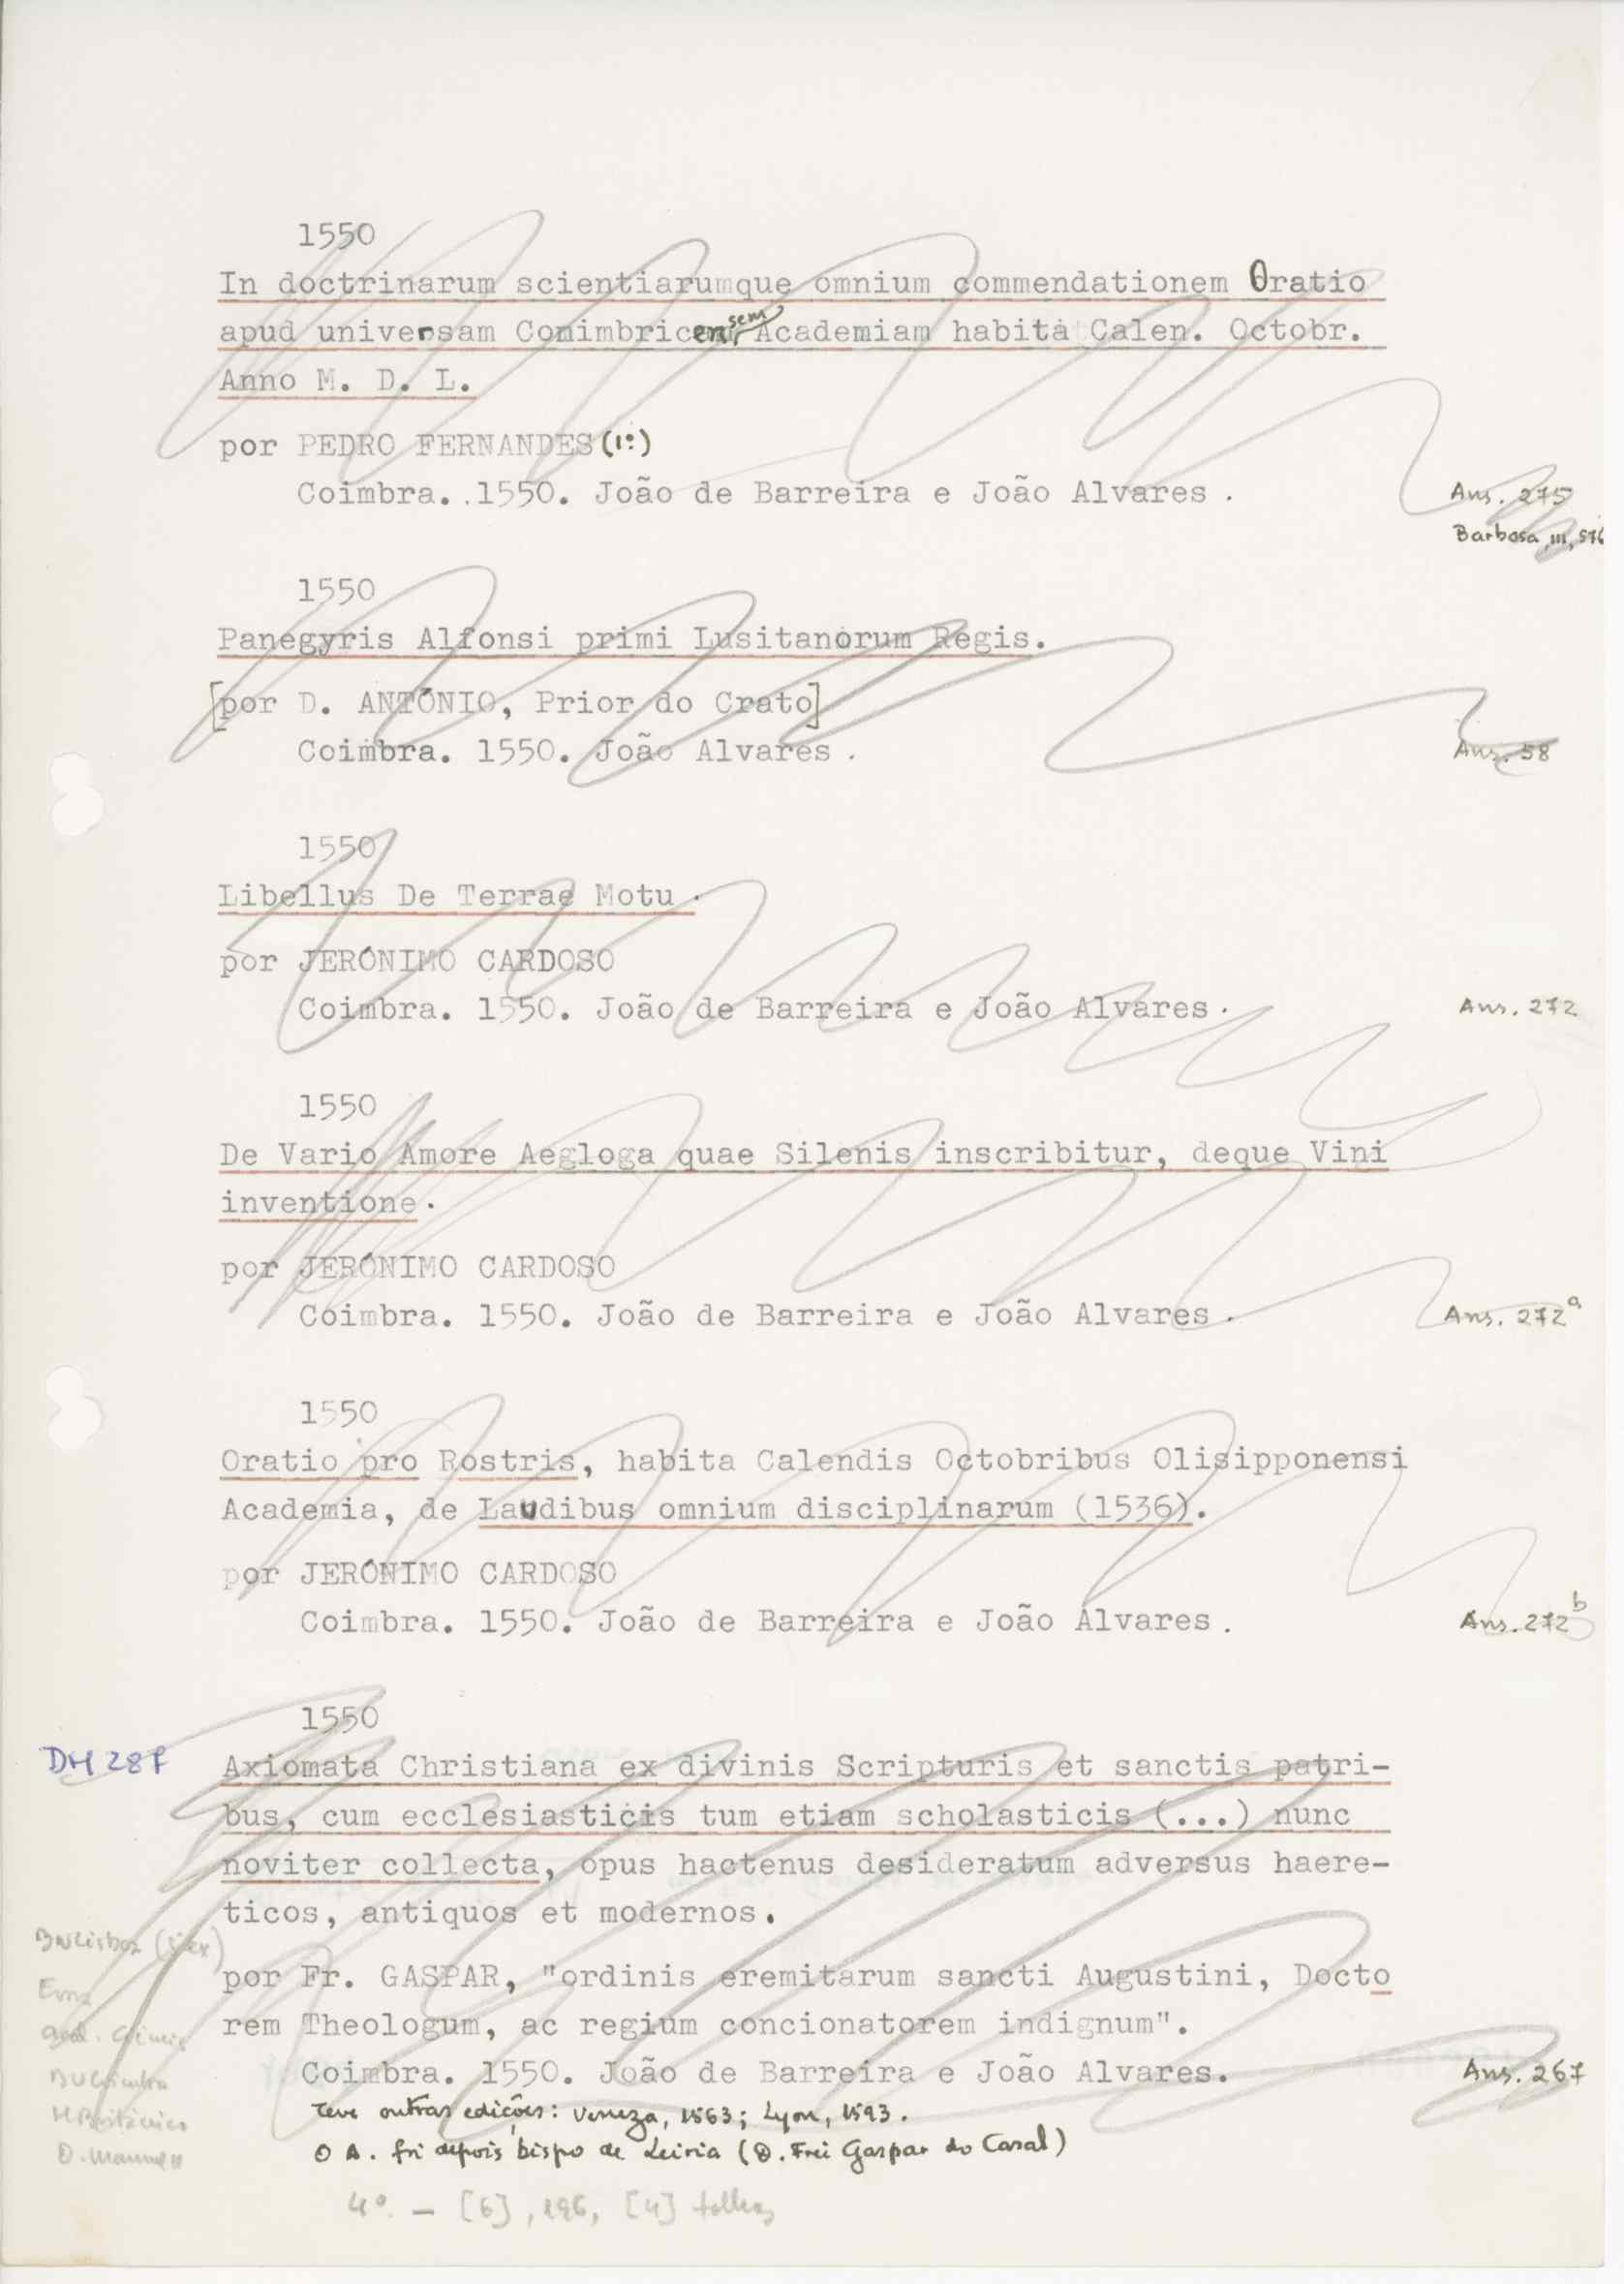 1550
In doctrinarum scientiarumque omnium commendationem Oratio
apud universam Conimbricensem Academiam habita Calen. Octobr.
Anno M. D. L.
por PEDRO FERNANDES (1º)
Coimbra. 1550. João de Barreira e João Alvares . Ans. 275
Barbosa, III, 576
1550
Panegyris Alfonsi primi Lusitanorum Regis.
[por D. ANTÓNIO, Prior do Crato]
Coimbra. 1550. João Alvares . Ans. 58
1550
Libellus De Terrae Motu .
por JERÓNIMO CARDOSO
Coimbra. 1550. João de Barreira e João Alvares . Ans. 272
1550
De Vario Amore Aegloga quae Silenis inscribitur, deque Vini
inventione .
por JERÓNIMO CARDOSO
Coimbra. 1550. João de Barreira e João Alvares . Ans. 272a
1550
Oratio pro Rostris, habita Calendis Octobribus Olisipponensi
Academia, de Laudibus omnium disciplinarum (1536).
por JERÓNIMO CARDOSO
Coimbra. 1550. João de Barreira e João Álvares . Ans. 272b
1550
DM 287 Axiomata Christiana ex divinis Scripturis et sanctis patri-
bus, cum ecclesiasticis tum etiam scholasticis (...) nunc
noviter collecta, opus hactenus desideratum adversus haere-
ticos, antiquos et modernos.
BNLisboa
por Fr. GASPAR, "ordinis eremitarum sancti Augustini, Docto
Evora
rem Theologum, ac regium concionatorem indignum".
Coimbra. 1550. João de Barreira e João Alvares. Ans. 267
BUCoimbra
Teve outras edições: Veneza, 1563; Lyon, 1593.
M. Britânico
O A. foi depois bispo de Leiria (D. Frei Gaspar do Casal)
D. Manuel II
4º. — [6], 196, [4] folhas